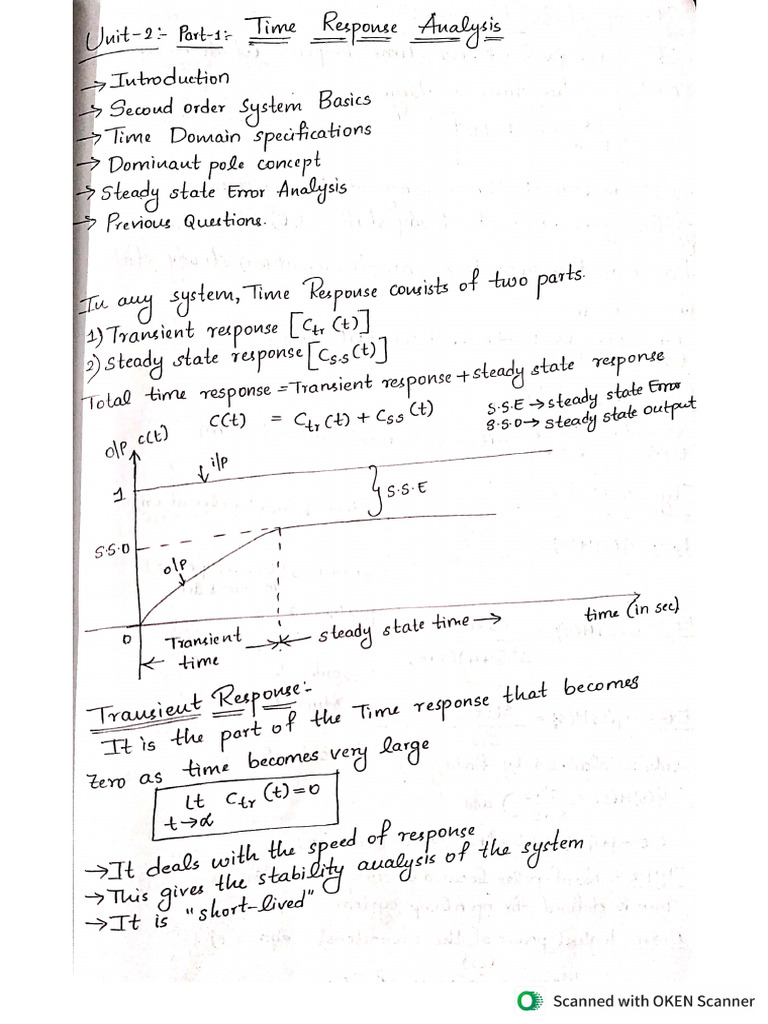 Unit-2:- Part-1:- Time Response Analysis
→ Introduction
→ Second order System Basics
→ Time Domain specifications
→ Dominant pole concept
→ Steady state Error Analysis
→ Previous Questions.
In any system, Time Response consists of two parts.
1) Transient response [Ctr (t)]
2) Steady state response [Cs.s (t)]
Total time response = Transient response + steady state response
C(t) = Ctr (t) + Css (t)
S.S.E → steady state Error
S.S.O → steady state output
o/p c(t)
i/p
1
S.S.E
S.S.O
o/p
0
Transient time
steady state time →
time (in sec)
Transient Response:-
It is the part of the Time response that becomes
zero as time becomes very large
Lt Ctr (t) = 0
t→α
→ It deals with the speed of response
→ This gives the stability analysis of the system
→ It is "short-lived"
Scanned with OKEN Scanner